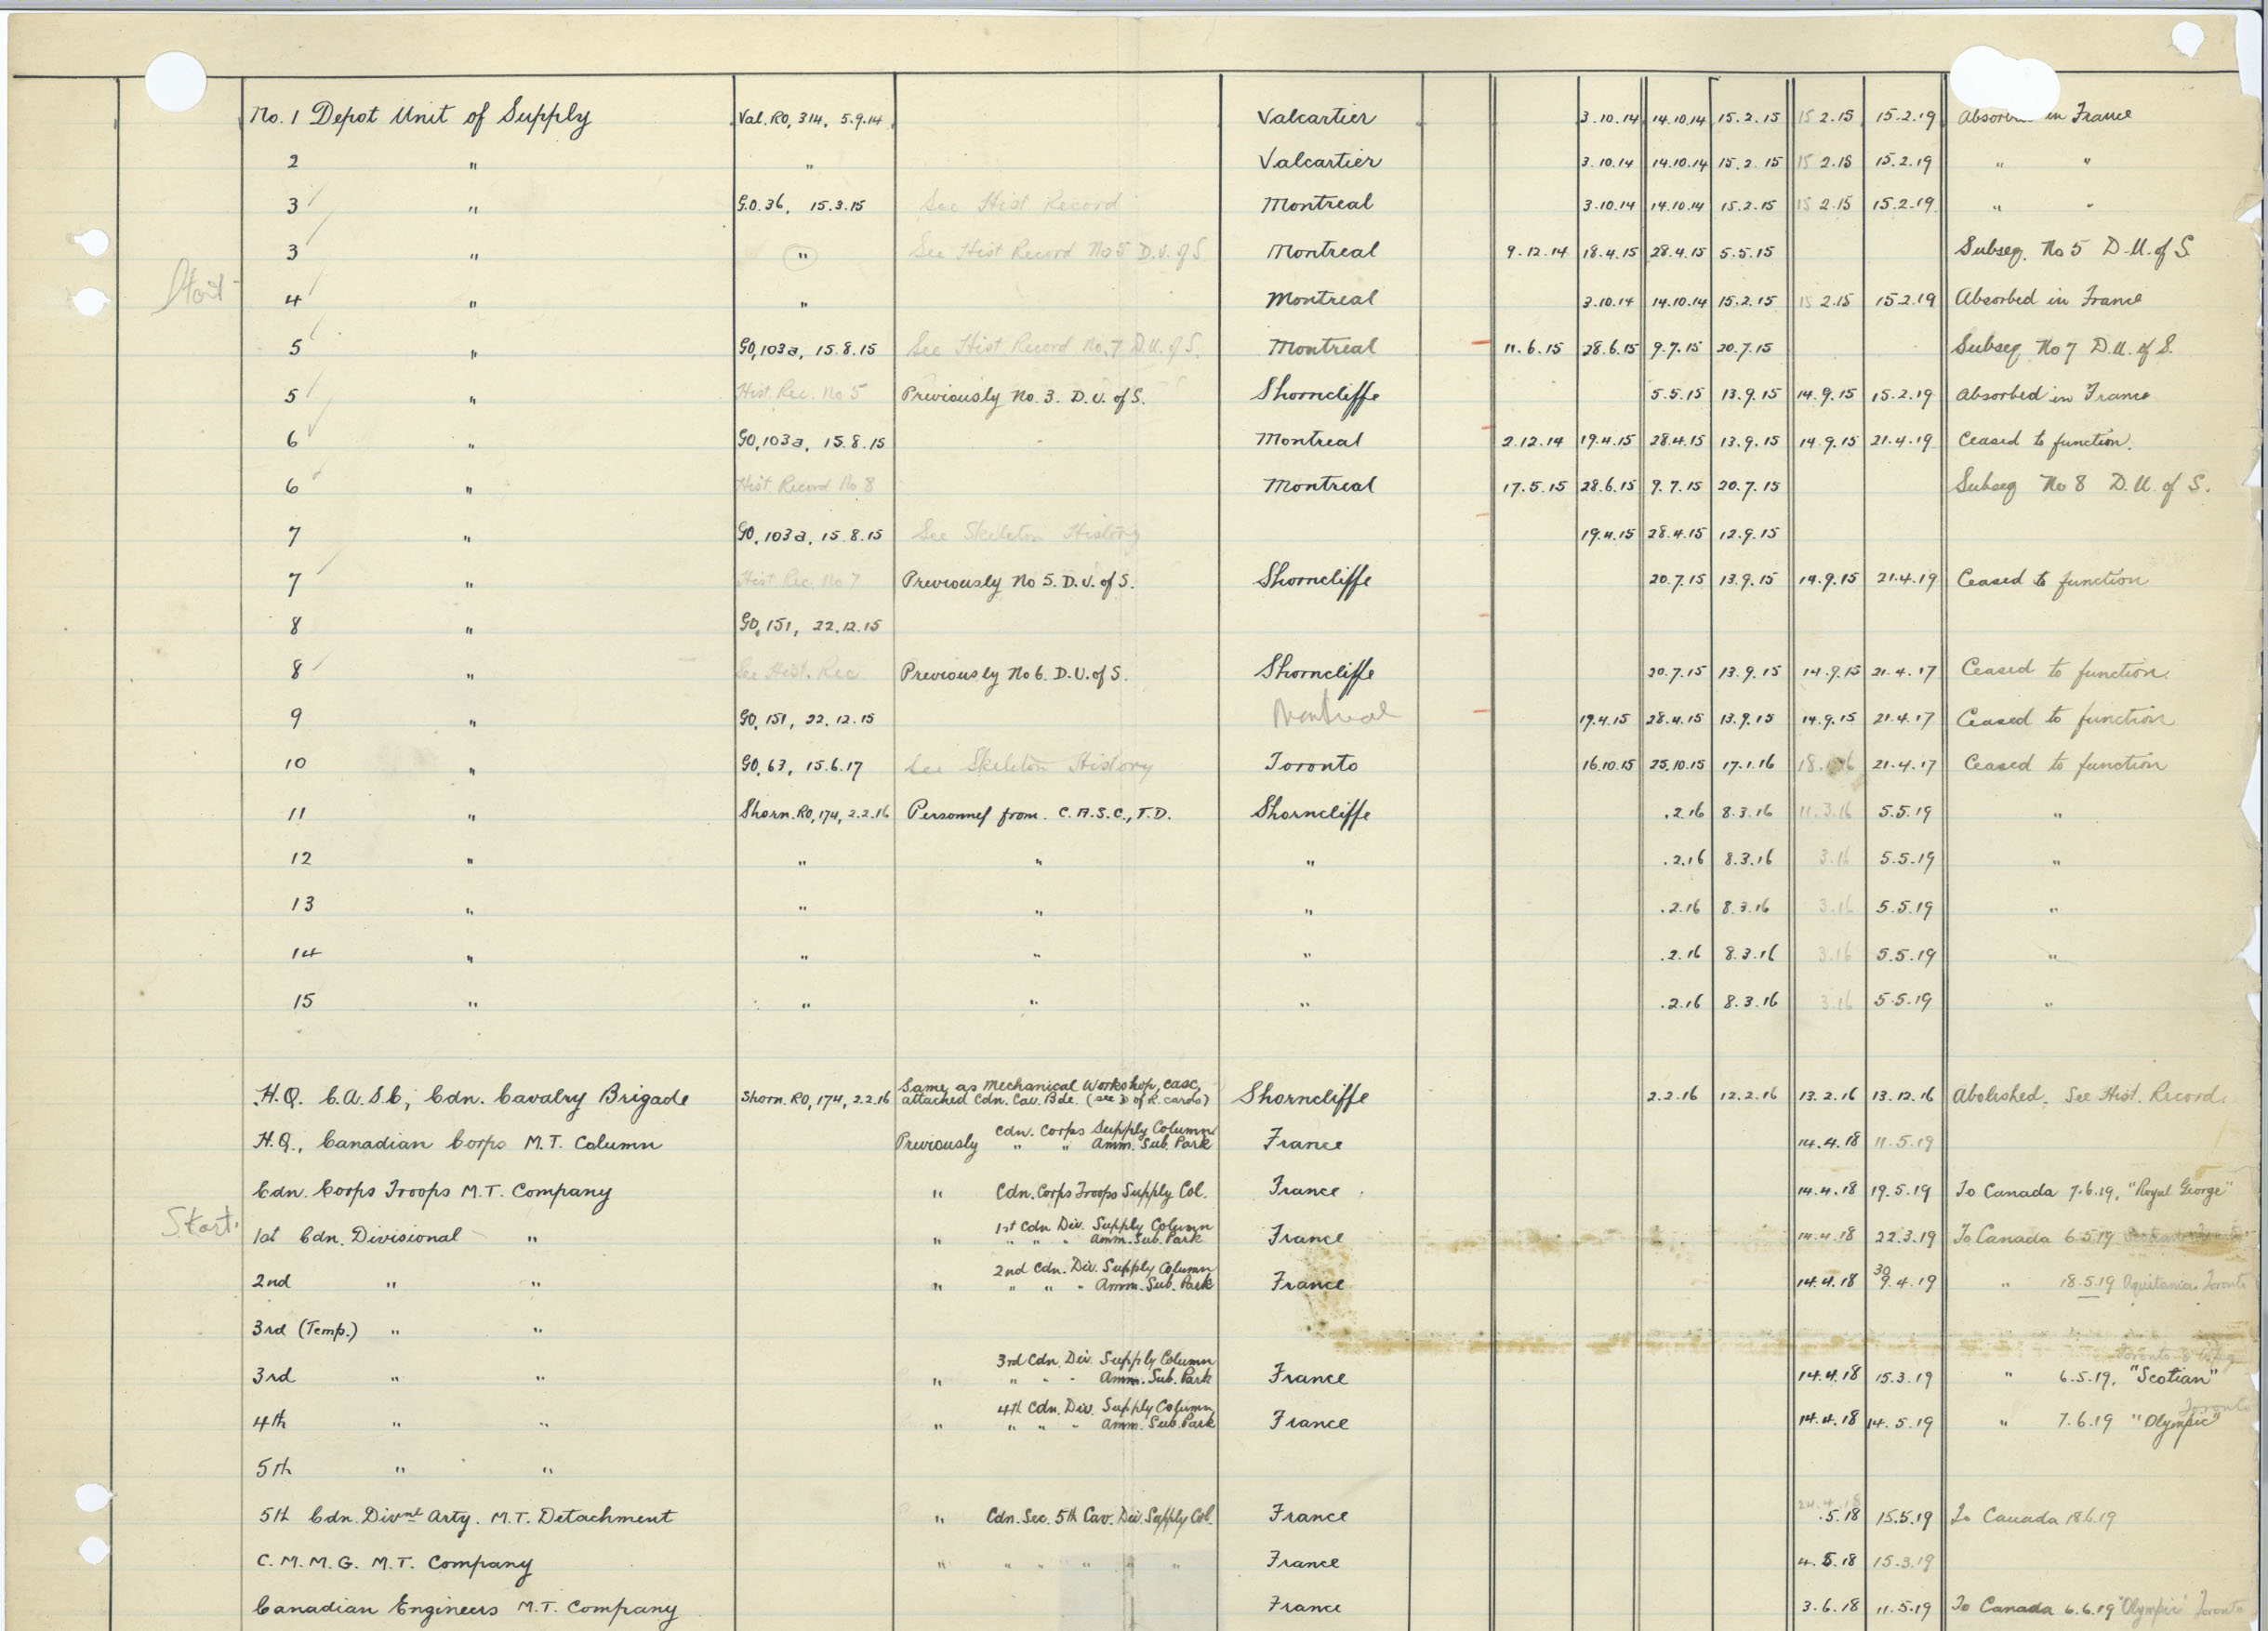 No. 1 Depot Unit of Supply Val. RO, 314, 5.9.14 Valcartier 3.10.14 14.10.14 15.2.15 15 2.15 15.2.19 in France
2 " " Valcartier 3.10.14 14.10.14 15.2.15 15 2.15 15.2.19 " "
3 " G.O. 36, 15.3.15 See Hist Record Montreal 3.10.14 14.10.14 15.2.15 15 2.15 15.2.19 " "
3 " " See Hist Record No 5 D.U. of S. Montreal 9.12.14 18.4.15 28.4.15 5.5.15 Subseq. No 5 D.U. of S.
Start 4 " " Montreal 3.10.14 14.10.14 15.2.15 15 2.15 15.2.19 Absorbed in France
5 " GO, 103a, 15.8.15 See Hist Record No. 7 D.U. of S. Montreal 11.6.15 28.6.15 9.7.15 20.7.15 Subseq No 7 D.U. of S.
5 " Hist. Rec. No 5 Previously No. 3. D.U. of S. Shorncliffe 5.5.15 13.9.15 14.9.15 15.2.19 Absorbed in France
6 " GO, 103a, 15.8.15 Montreal 2.12.14 19.4.15 28.4.15 13.9.15 14.9.15 21.4.19 Ceased to function.
6 " Hist. Record No 8 Montreal 17.5.15 28.6.15 9.7.15 20.7.15 Subseq No 8 D.U. of S.
7 " GO, 103a, 15.8.15 See Skeleton History 19.4.15 28.4.15 12.9.15
7 " Hist Rec. No 7 Previously No 5. D.U. of S. Shorncliffe 20.7.15 13.9.15 14.9.15 21.4.19 Ceased to function
8 " GO, 151, 22.12.15
8 " See Hist. Rec Previously No 6. D.U. of S. Shorncliffe 20.7.15 13.9.15 14.9.15 21.4.17 Ceased to function.
9 " GO, 151, 22.12.15 Montreal 19.4.15 28.4.15 13.9.15 14.9.15 21.4.17 Ceased to function
10 " GO, 63, 15.6.17 See Skeleton History Toronto 16.10.15 25.10.15 17.1.16 21.4.17 Ceased to function
11 " Shorn. RO, 174, 2.2.16 Personnel from C.A.S.C., T.D. Shorncliffe .2.16 8.3.16 11.3.16 5.5.19 "
12 " " " " .2.16 8.3.16 3.16 5.5.19 "
13 " " " " .2.16 8.3.16 3.16 5.5.19 "
14 " " " " .2.16 8.3.16 3.16 5.5.19 "
15 " " " " .2.16 8.3.16 3.16 5.5.19 "
H.Q. C.A.S.C, Cdn. Cavalry Brigade Shorn. RO, 174, 2.2.16 Same as Mechanical Workshop, CASC, attached Cdn. Cav. Bde. (see D of R. cards) Shorncliffe 2.2.16 12.2.16 13.2.16 13.12.16 Abolished. See Hist. Record.
H.Q., Canadian Corps M.T. Column Previously Cdn. Corps Supply Column " " Amm. Sub. Park France 14.4.18 11.5.19
Cdn. Corps Troops M.T. Company " Cdn. Corps Troops Supply Col. France 14.4.18 19.5.19 To Canada 7.6.19, "Royal George"
Start. 1st Cdn. Divisional " " 1st Cdn Div. Supply Column " " " Amm. Sub. Park France 14.4.18 22.3.19 To Canada 6.5.19
2nd " " " 2nd Cdn. Div. Supply Column " " " Amm. Sub. Park France 14.4.18 30 9.4.19 " 18.5.19 Aquitania Toronto
3rd (Temp.) " "
3rd " " " 3rd Cdn. Div. Supply Column " " " Amm. Sub. Park France 14.4.18 15.3.19 " Toronto 6.5.19, "Scotian"
4th " " " 4th Cdn. Div. Supply Column " " " Amm. Sub. Park France 14.4.18 14.5.19 " 7.6.19 "Olympic" Toronto
5th " "
5th Cdn. Divnl Arty. M.T. Detachment " Cdn. Sec. 5th Cav. Div. Supply Col. France 24.4.18 .5.18 15.5.19 To Canada 18.6.19
C.M.M.G. M.T. Company " " " " " " France 4.5.18 15.3.19
Canadian Engineers M.T. Company France 3.6.18 11.5.19 To Canada 6.6.19 "Olympic" Toronto